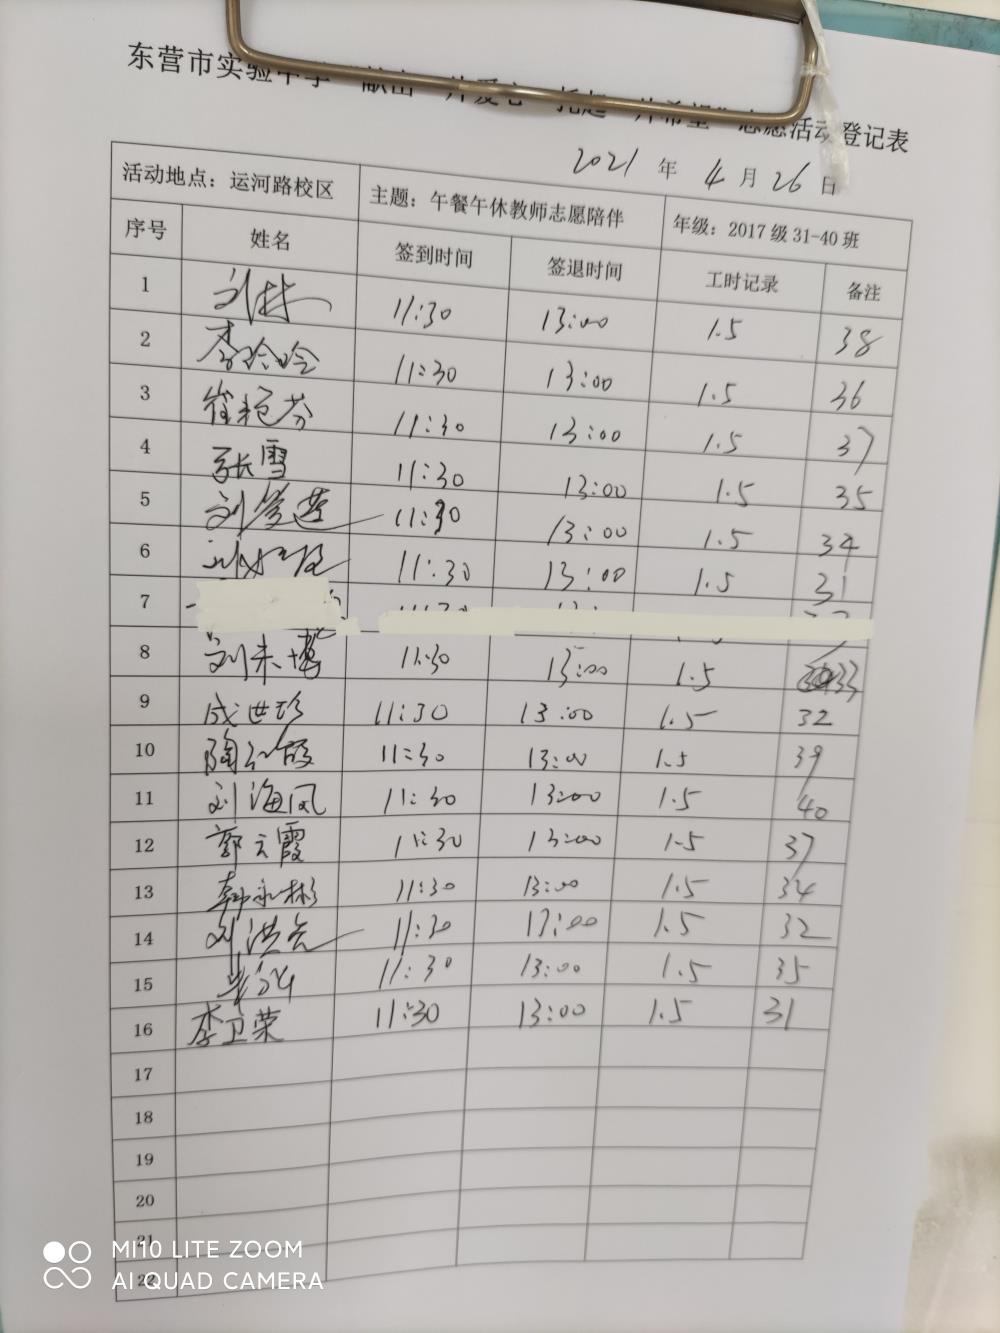 东营市实验中学"献出一片爱心 托起一片希望"志愿活动登记表
2021 年 4 月 26 日
活动地点：运河路校区 主题：午餐午休教师志愿陪伴 年级：2017 级 31-40 班
序号 姓名 签到时间 签退时间 工时记录 备注
1 刘 11:30 13:00 1.5 38
2 李玲玲 11:30 13:00 1.5 36
3 崔艳芬 11:30 13:00 1.5 37
4 张雪 11:30 13:00 1.5 35
5 刘莲 11:30 13:00 1.5 34
6 刘 11:30 13:00 1.5 31
7
8 刘来博 11:30 13:00 1.5 33
9 成世珍 11:30 13:00 1.5 32
10 陶 11:30 13:00 1.5 39
11 刘海凤 11:30 13:00 1.5 40
12 郭云霞 11:30 13:00 1.5 37
13 韩永彬 11:30 13:00 1.5 34
14 刘洪 11:30 17:00 1.5 32
15 11:30 13:00 1.5 35
16 李卫荣 11:30 13:00 1.5 31
17
18
19
20
21
22
MI 10 LITE ZOOM
AI QUAD CAMERA